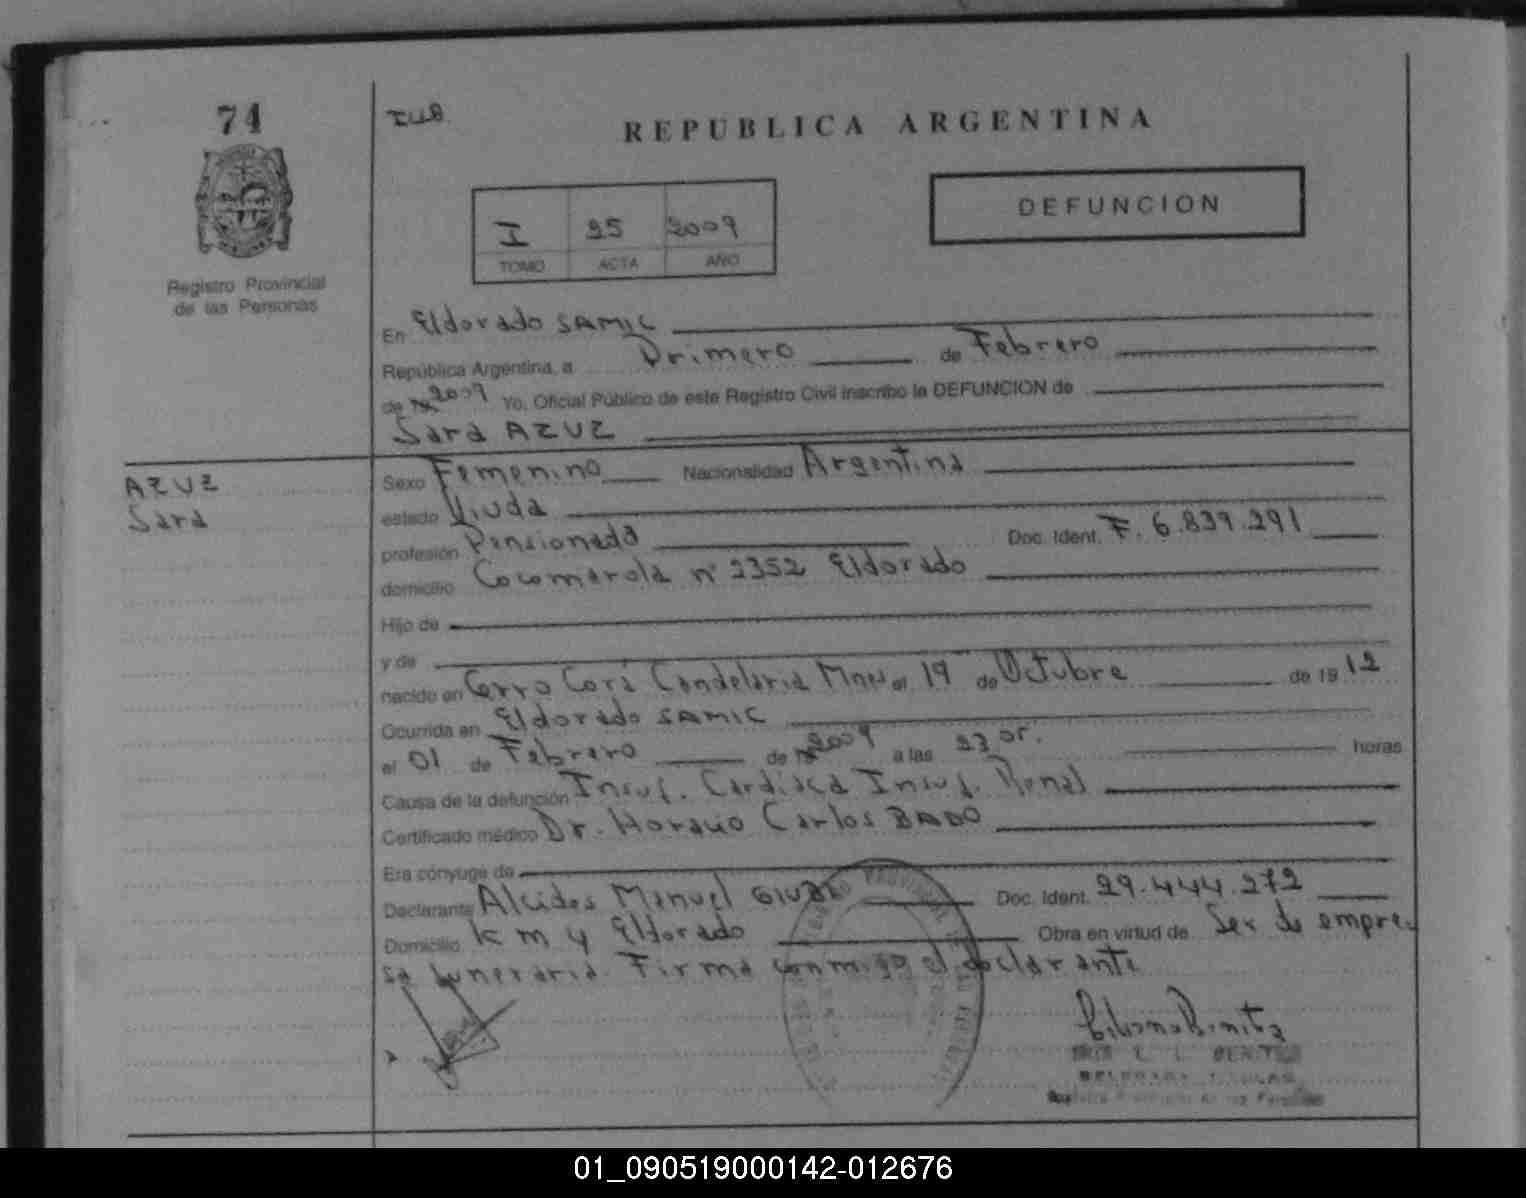 74
REPUBLICA ARGENTINA
DEFUNCION
I 25 2009
TOMO ACTA AÑO
Registro Provincial
de las Personas
En Eldorado SAMIC
República Argentina, a Primero de Febrero
de 2009 Yo, Oficial Público de este Registro Civil inscribo la DEFUNCION de
Sara AZUZ
AZUZ
Sara
Sexo Femenino Nacionalidad Argentina
estado Viuda
profesión Pensionada Doc. Ident. F. 6.839.291
domicilio Cocomarola nº 2352 Eldorado
Hijo de
y de
nacido en Cerro Corá Candelaria Mnes el 19 de Octubre de 19 12
Ocurrida en Eldorado SAMIC
el 01 de Febrero de 2009 a las 23 05. horas
Causa de la defunción Insuf. Cardiaca Insuf. Renal
Certificado médico Dr. Horacio Carlos BADO
Era cónyuge de
Declarante Alcides Manuel Doc. Ident. 29.444.272
Domicilio Km 4 Eldorado Obra en virtud de Ser de empre-
sa funeraria. Firma conmigo el declarante
01_090519000142-012676